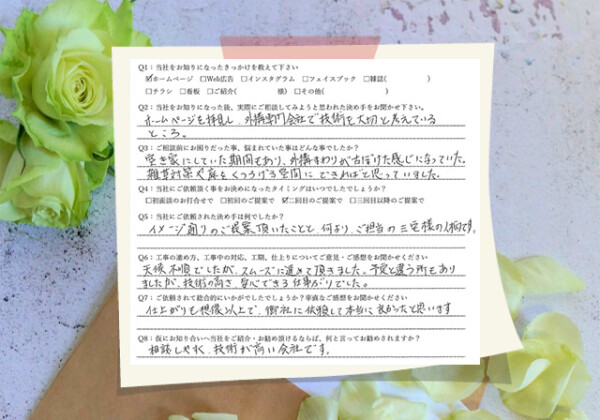 Q1：当社をお知りになったきっかけを教えて下さい
☑ホームページ　□Web広告　□インスタグラム　□フェイスブック　□雑誌(　　　　)
□チラシ　□看板　□ご紹介(　　　　様)　□その他(　　　　)
Q2：当社をお知りになった後、実際にご相談してみようと思われた決め手をお聞かせ下さい。
ホームページを拝見し、外構専門会社で技術を大切と考えている
ところ。
Q3：ご相談前にお困りだった事、悩まれていた事はどんな事でしたか？
空き家にしていた期間もあり、外構まわりが古ぼけた感じになっていた。
雑草対策や庭をくつろげる空間にできればと思っていました。
Q4：当社にご依頼頂く事をお決めになったタイミングはいつでしたでしょうか？
□初面談のお打合せで　□初回のご提案で　☑二回目のご提案で　□三回目以降のご提案で
Q5：当社にご依頼された決め手は何でしたか？
イメージ通りのご提案頂いたことと、何より、ご担当の三宅様の人柄です。
Q6：工事の進め方、工事中の対応、工期、仕上りについてご意見・ご感想をお聞かせください
天候不順でしたが、スムーズに進めて頂きました。予定と違う所もあり
ましたが、技術の高さ、安心できる仕事がりでした。
Q7：ご依頼されて総合的にいかがでしたでしょうか？率直なご感想をお聞かせください
仕上がりも想像以上で、御社に依頼して本当に良かったと思います
Q8：仮にお知り合いへ当社をご紹介・お勧め頂けるならば、何と言ってお勧めされますか？
相談しやすく、技術が高い会社です。